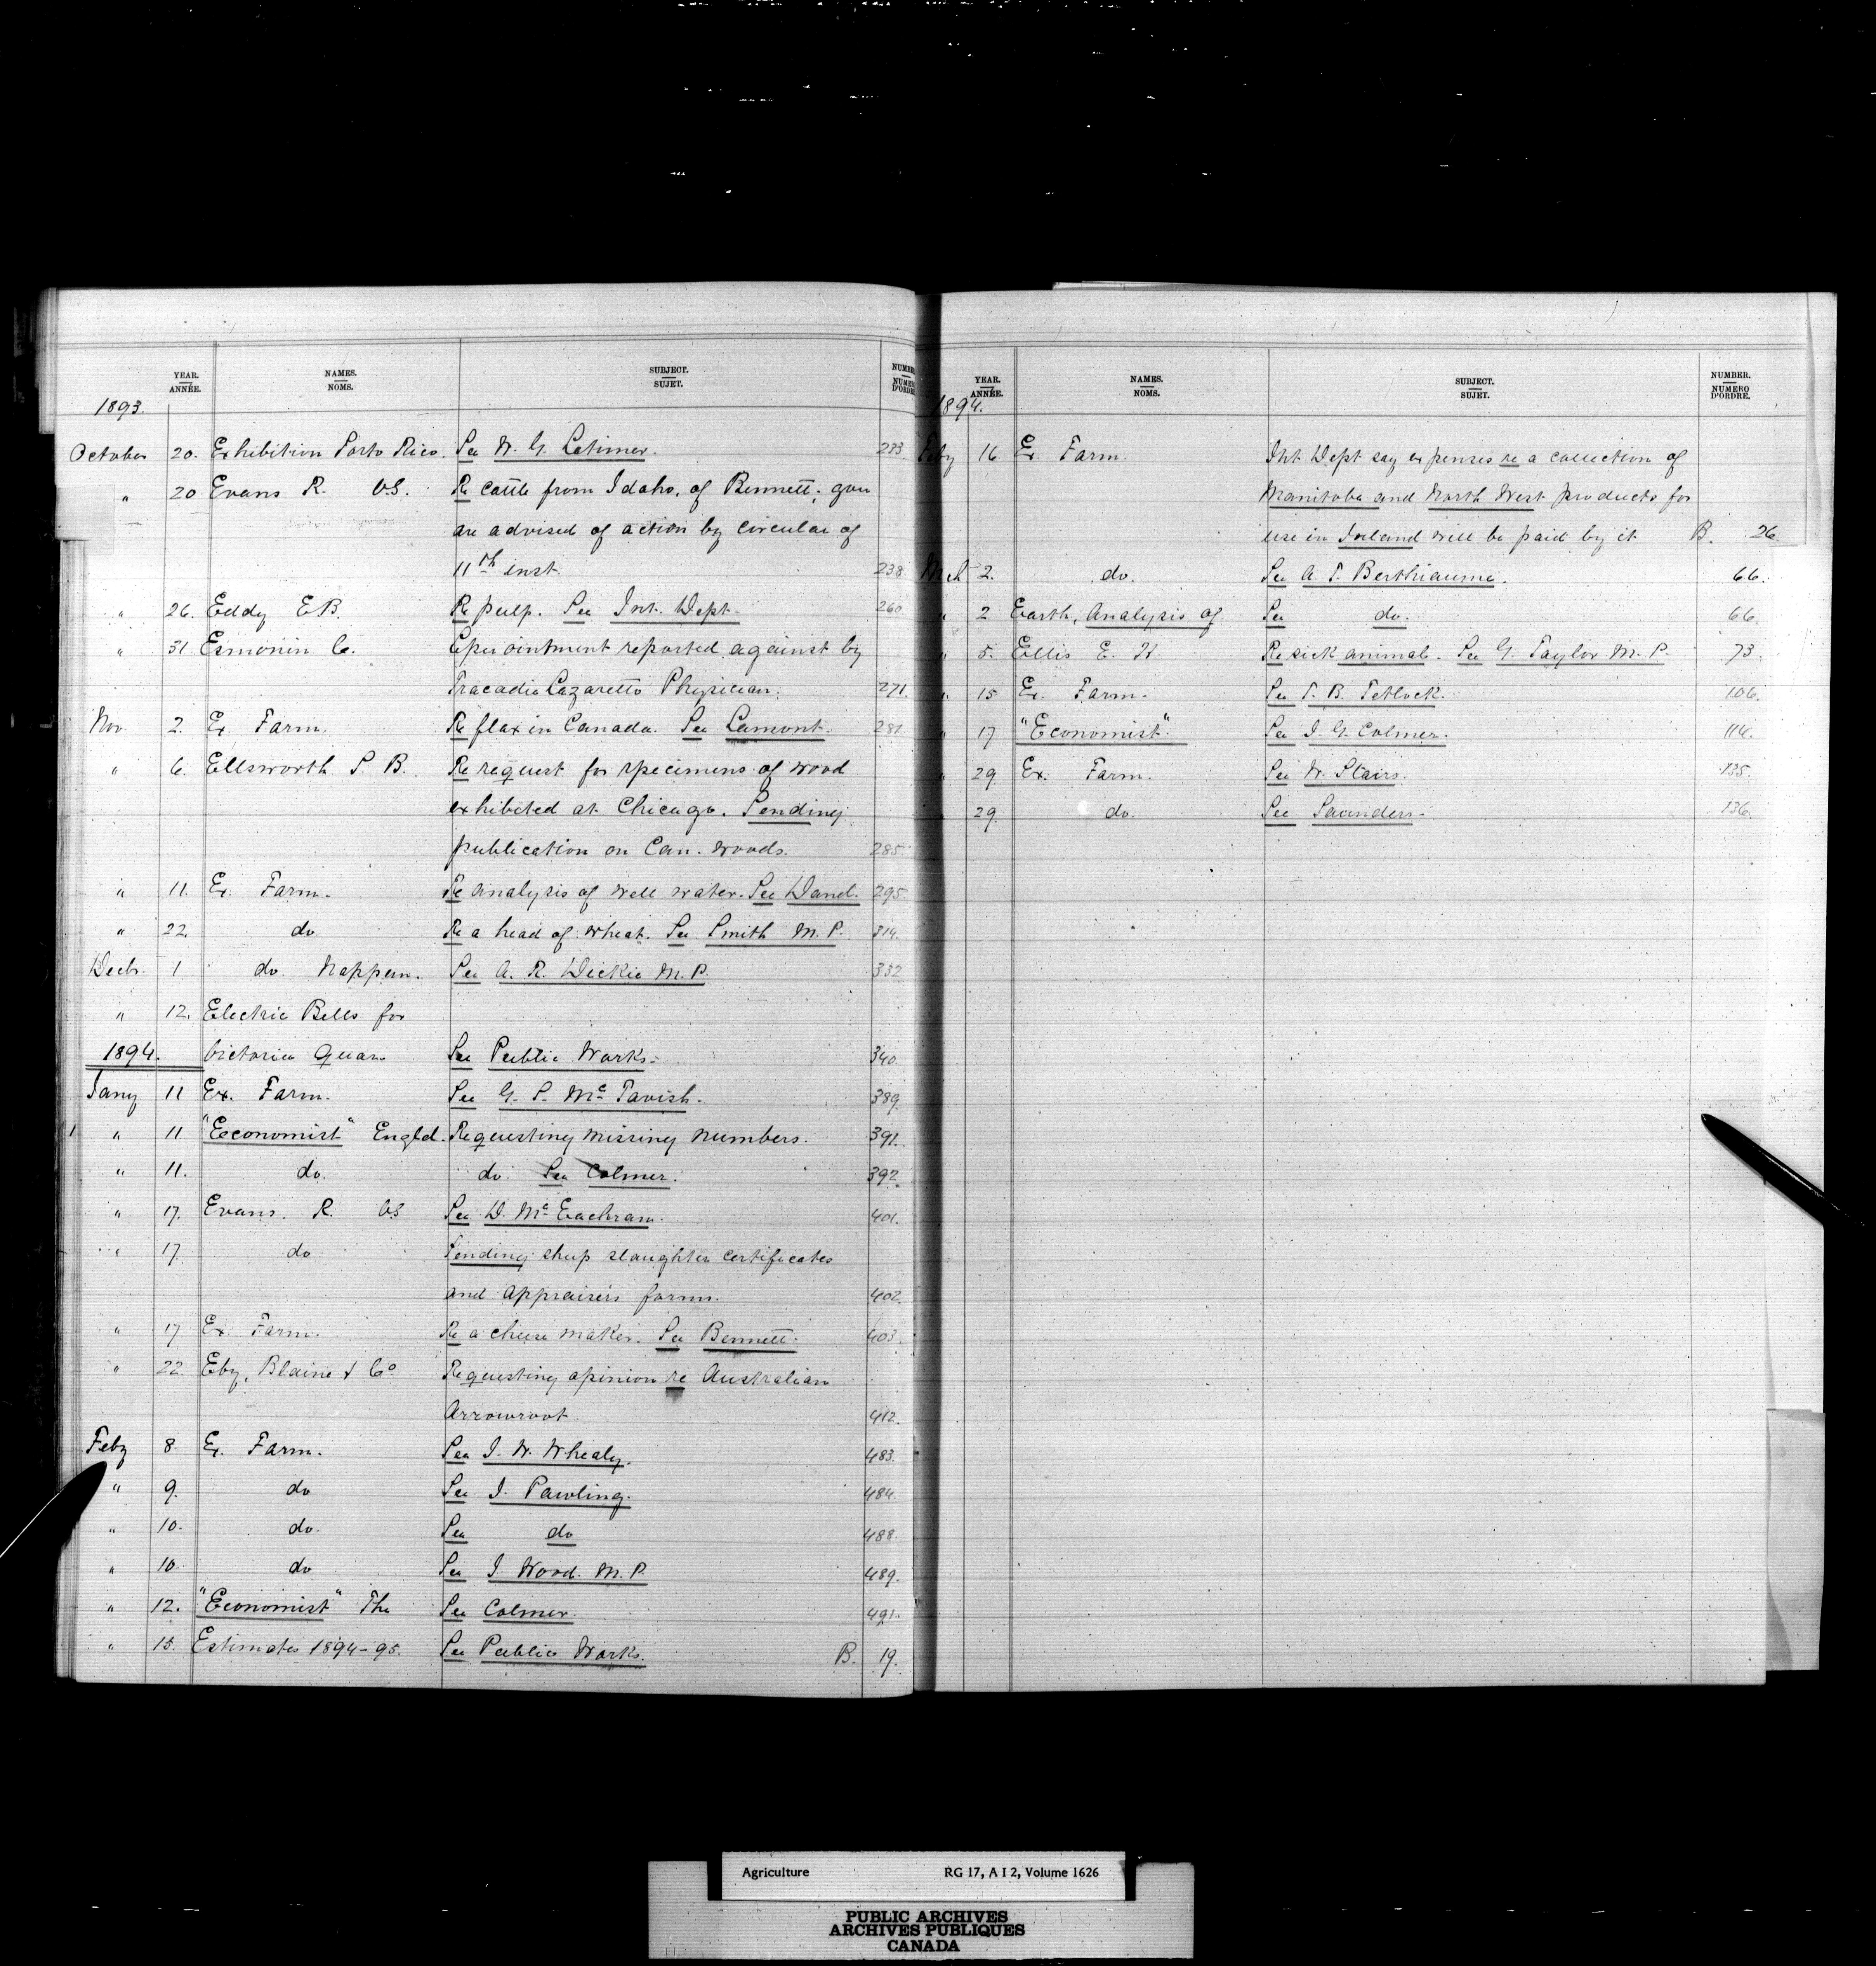 YEAR. NAMES. SUBJECT. NUMBER
ANNÉE. NOMS. SUJET. NUMERO D'ORDRE
1893.
October 20. Exhibition Porto Rico. See W. G. Latimer. 233
" 20 Evans R. V.S. Re cattle from Idaho, of Bennett; you
are advised of action by circular of
11th inst. 238
" 26. Eddy E B. Re pulp. See Int. Dept. 260
" 31 Esmonin C. appointment reported against by
Tracadie Lazaretto Physician. 271.
Nov. 2. Ex. Farm. Re flax in Canada. See Lamont. 281
" 6. Ellsworth S. B. Re request for specimens of wood
exhibited at Chicago. Sending
publication on Can. woods. 285
" 11. Ex. Farm. Re analysis of well water. See Dand. 295
" 22. do Re a head of wheat. See Smith M. P. 314.
Decb. 1 do. Nappan. See A. R. Dickie M. P. 332
" 12. Electric Bells for
1894. Victoria Quan See Public Works. 340.
Jany 11 Ex. Farm. See G. S. Mc Tavish. 389.
" 11 "Economist" Engld. Requesting missing numbers. 391.
" 11. do. do. See Colmer. 392.
" 17. Evans. R. VS See D. Mc Eachran. 401.
" 17. do Sending sheep slaughter certificates
and appraisers forms. 402.
" 17. Ex. Farm. Re a cheese maker. See Bennett. 403.
" 22. Eby, Blaine & Co Requesting opinion re Australian
Arrowroot. 412.
Feby 8. Ex. Farm. See J. W. Whealy. 483.
" 9. do See J. Pawling. 484.
" 10. do. See do 488.
" 10. do See J. Wood. M. P. 489.
" 12. "Economist" The See Colmer. 491.
" 15. Estimates 1894-95. See Public Works. B. 19.
YEAR. NAMES. SUBJECT. NUMBER.
ANNÉE. NOMS. SUJET. NUMERO D'ORDRE.
1894.
Feby 16 Ex. Farm. Int. Dept say expenses re a collection of
Manitoba and North West products for
use in Ireland will be paid by it B. 26.
Mch 2. do. See A. T. Berthiaume. 66.
" 2 Earth, Analysis of See do. 66.
" 5. Ellis E. H. Re sick animal. See G. Taylor M. P. 73.
" 15 Ex. Farm. See T. B. Tetlock. 106.
" 17 "Economist". See J. G. Colmer. 114.
" 29 Ex. Farm. See W. Stairs. 135.
29. do. See Saunders. 136.
Agriculture RG 17, A I 2, Volume 1626
PUBLIC ARCHIVES
ARCHIVES PUBLIQUES
CANADA